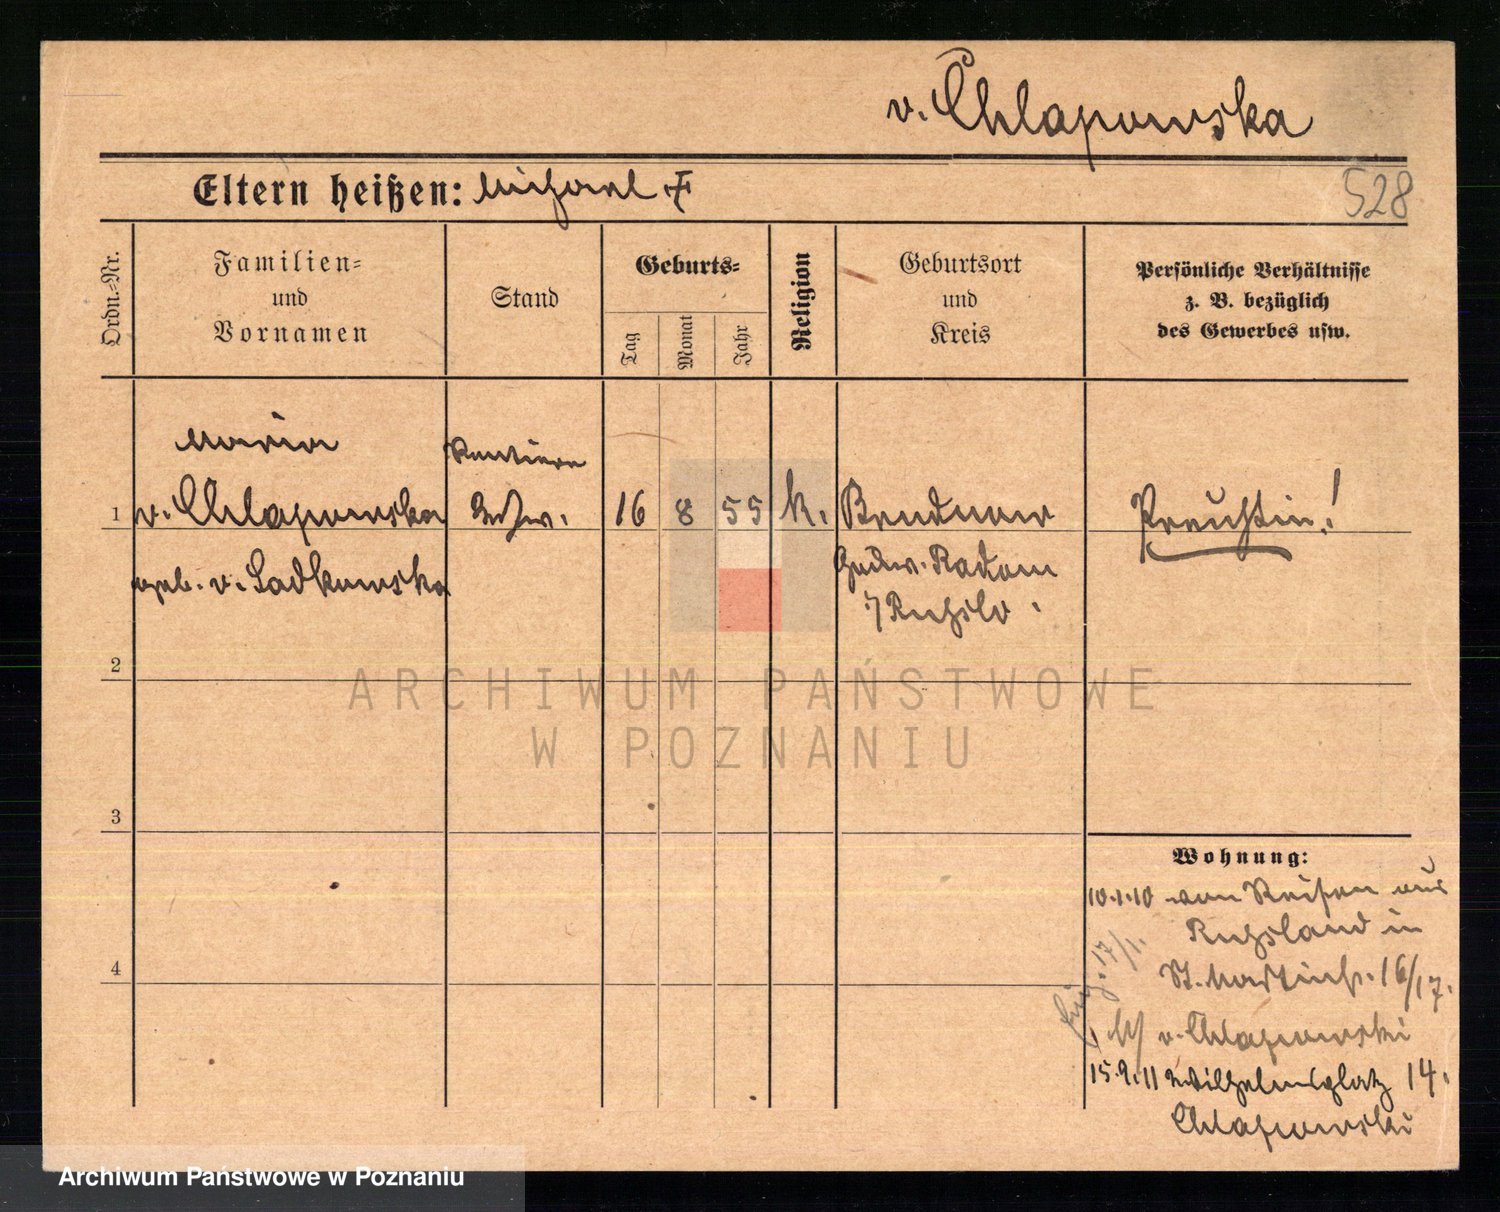 v. Chlapowska
Eltern heißen: Michael F
528
Ordn.-Nr.
Familien-
und
Vornamen
Stand
Geburts-
Tag
Monat
Jahr
Religion
Geburtsort
und
Kreis
Persönliche Verhältnisse
z. B. bezüglich
des Gewerbes usw.
Maria
Rentiere
1 v. Chlapowska Wwe. 16 8 55 k. Preußin!
geb. v. Sadkowska
Gouv. Radom
i/ Rußld.
2
ARCHIWUM PAŃSTWOWE
W POZNANIU
3
4
Wohnung:
10.1.10 von Reisen aus
Rußland in
St. Martinstr. 16/17.
b/ v. Chlapowski
17/1.
15.9.11 Wilhelmsplatz 14.
Chlapowski
Archiwum Państwowe w Poznaniu